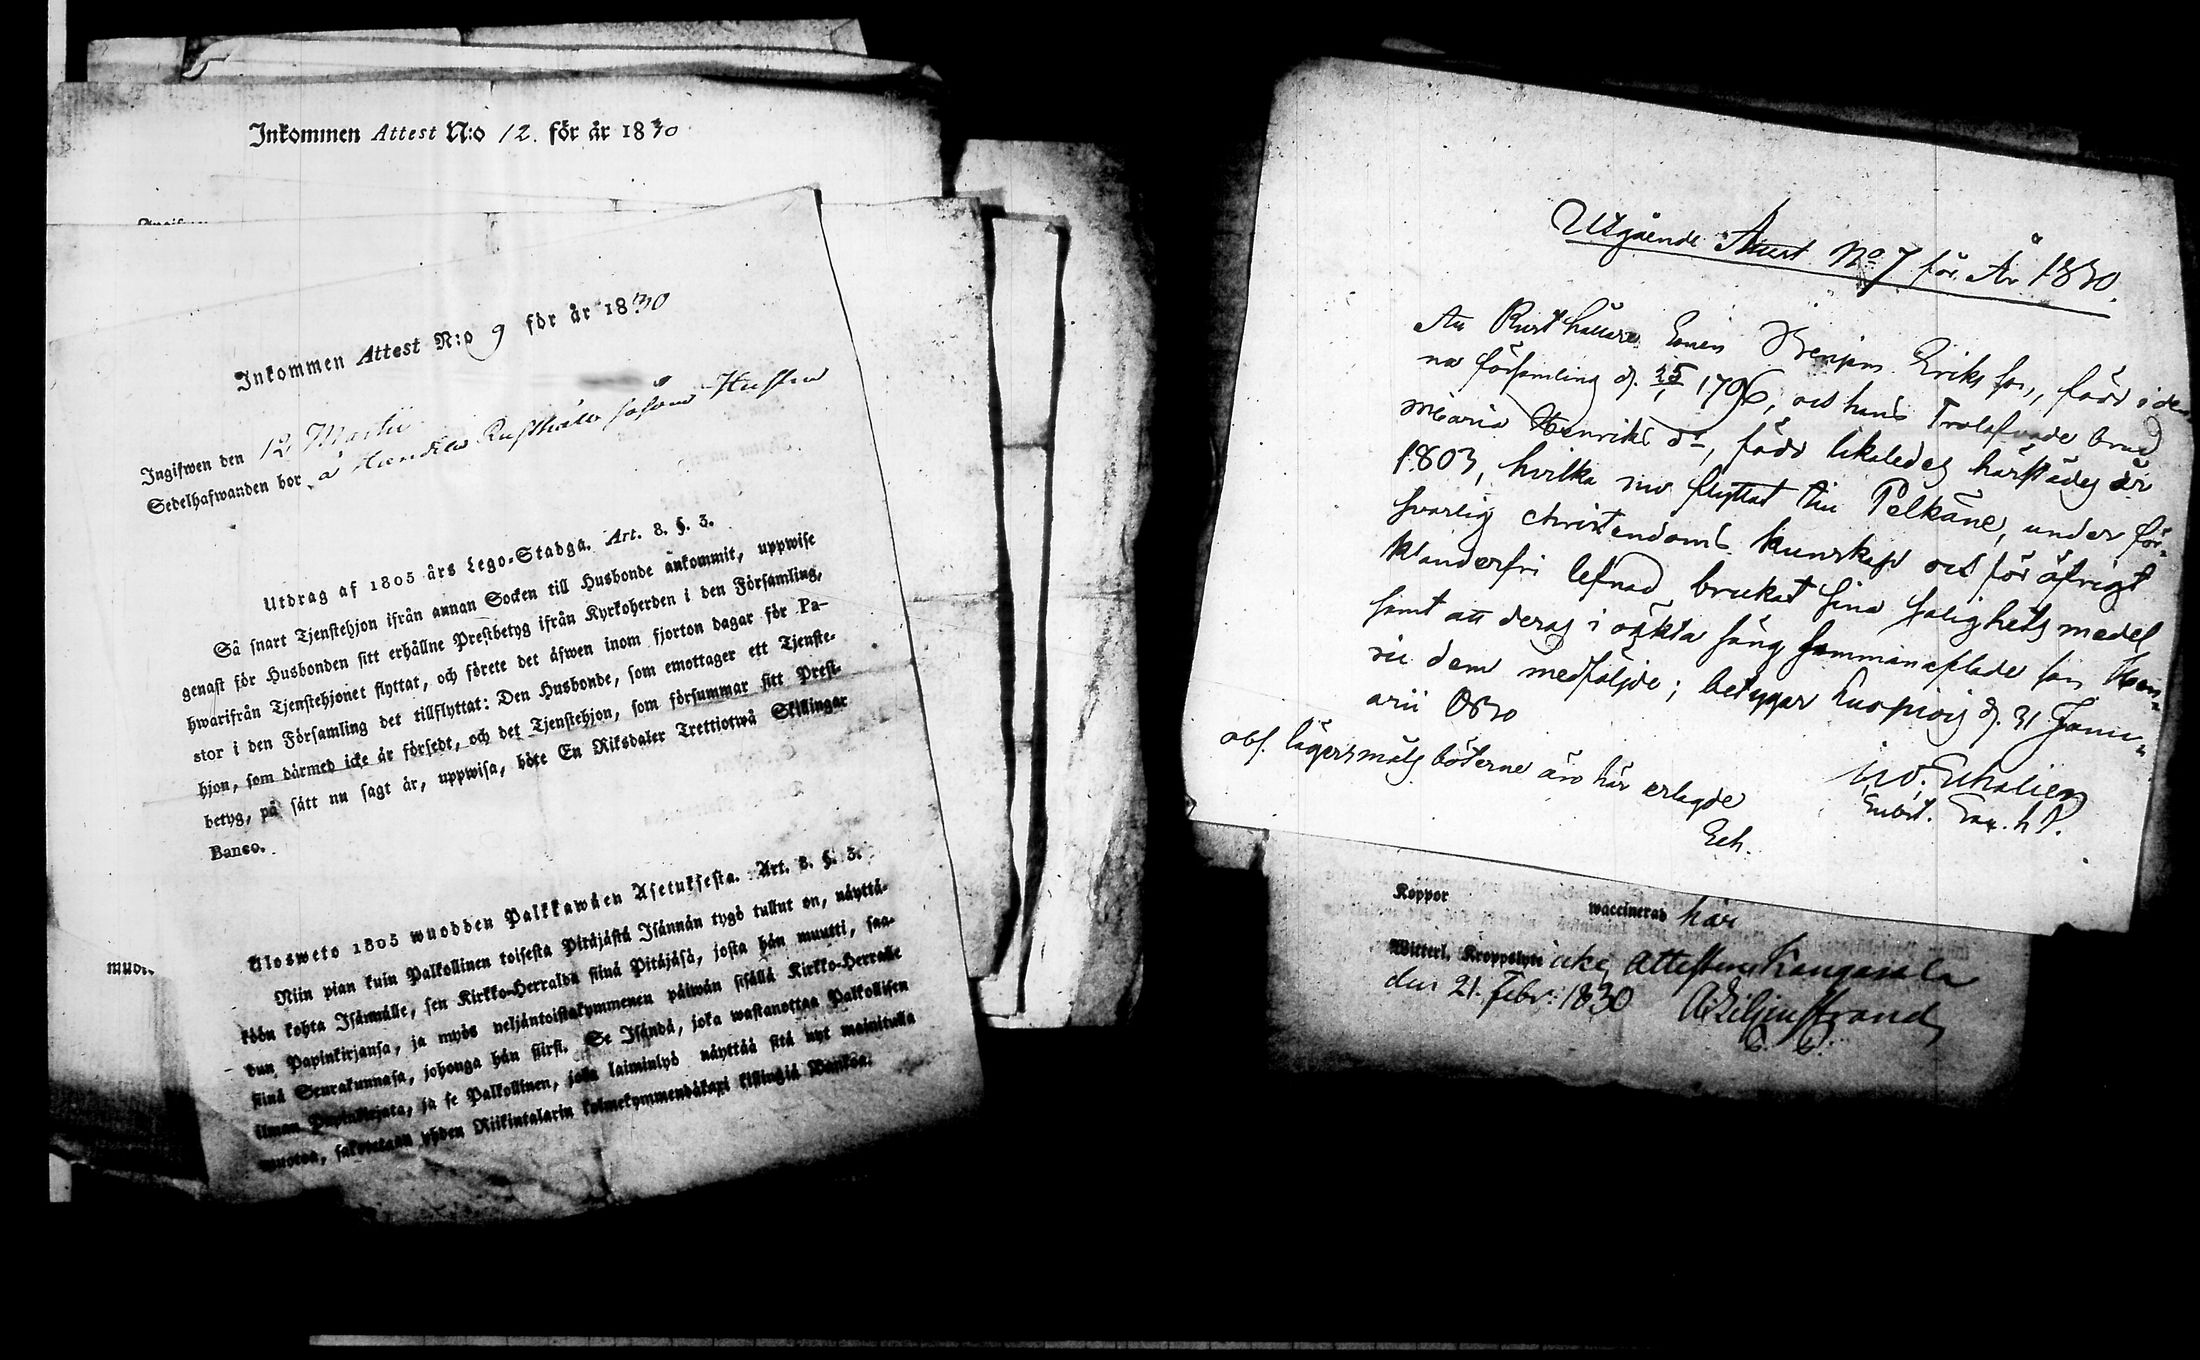 Inkommen Attest N:o 12. för år 1830
Inkommen Attest N:o 9 för år 1830
Ingifwen den 12 Martii
Sedelhafwanden bor å Rusthåll såsom Hustru
Utdrag af 1805 års Lego-Stadga. Art. 8. §. 3.
Så snart Tjenstehjon ifrån annan Socken till Husbonde ankommit, uppwise
genast för Husbonden sitt erhållne Prestbetyg ifrån Kyrkoherden i den Församling,
hwarifrån Tjenstehjonet flyttat, och förete det äfwen inom fjorton dagar för Pa-
stor i den Församling det tillflyttat: Den Husbonde, som emottager ett Tjenste-
hjon, som därmed icke är försedt, och det Tjenstehjon, som försummar sitt Prest-
betyg, på sätt nu sagt är, uppwisa, böte En Riksdaler Trettiotwå Skillingar
Banco.
Ulosweto 1805 wuodden Palkkawäen Asetuksesta. Art. 8. §. 3.
Niin pian kuin Palkollinen toisesta Pitäjästä Isännän tygö tullut on, näyttä-
köön kohta Isännälle, sen Kirkko-Herralda siinä Pitäjäsä, josta hän muutti, saa-
dun Papinkirjansa, ja myös neljäntoistakymmenen päiwän sisällä Kirkko-Herralle
siinä Seurakunnasa, johonga hän siirsi. Se Isändä, joka wastanottaa Palkollisen
ilman Papinkirjata, ja se Palkollinen, joka laiminlyö näyttää sitä nyt mainitulla
muotoa, sakotetaan yhden Riikintalarin kolmekymmendäkaxi killingiä Bankoa.
Utgående Attest No 7 för År 1830.
At Rusthållare Sonen Benjam Eriks son, född i den
na församling d. 25 1796, och hans Trolofvade brud
Maria Henriks dr, född likaledes härstädes år
1803, hvilka nu flyttat till Pelkäne, under för-
svarlig christendoms kunskap och för öfrigt
klanderfri lefnad brukat sina salighets medel
samt att deras i oäkta säng sammanaflade son Hen-
ric dem medföljde; betygar d. 31 Janu-
arii 1830
obs. lägersmåls böterne äro här erlagde
Eeh.
Koppor waccinerad har
Witterl. Kroppslyte icke, Attesterar Kangasala
den 21. Febr: 1830 A: Liljenstrand